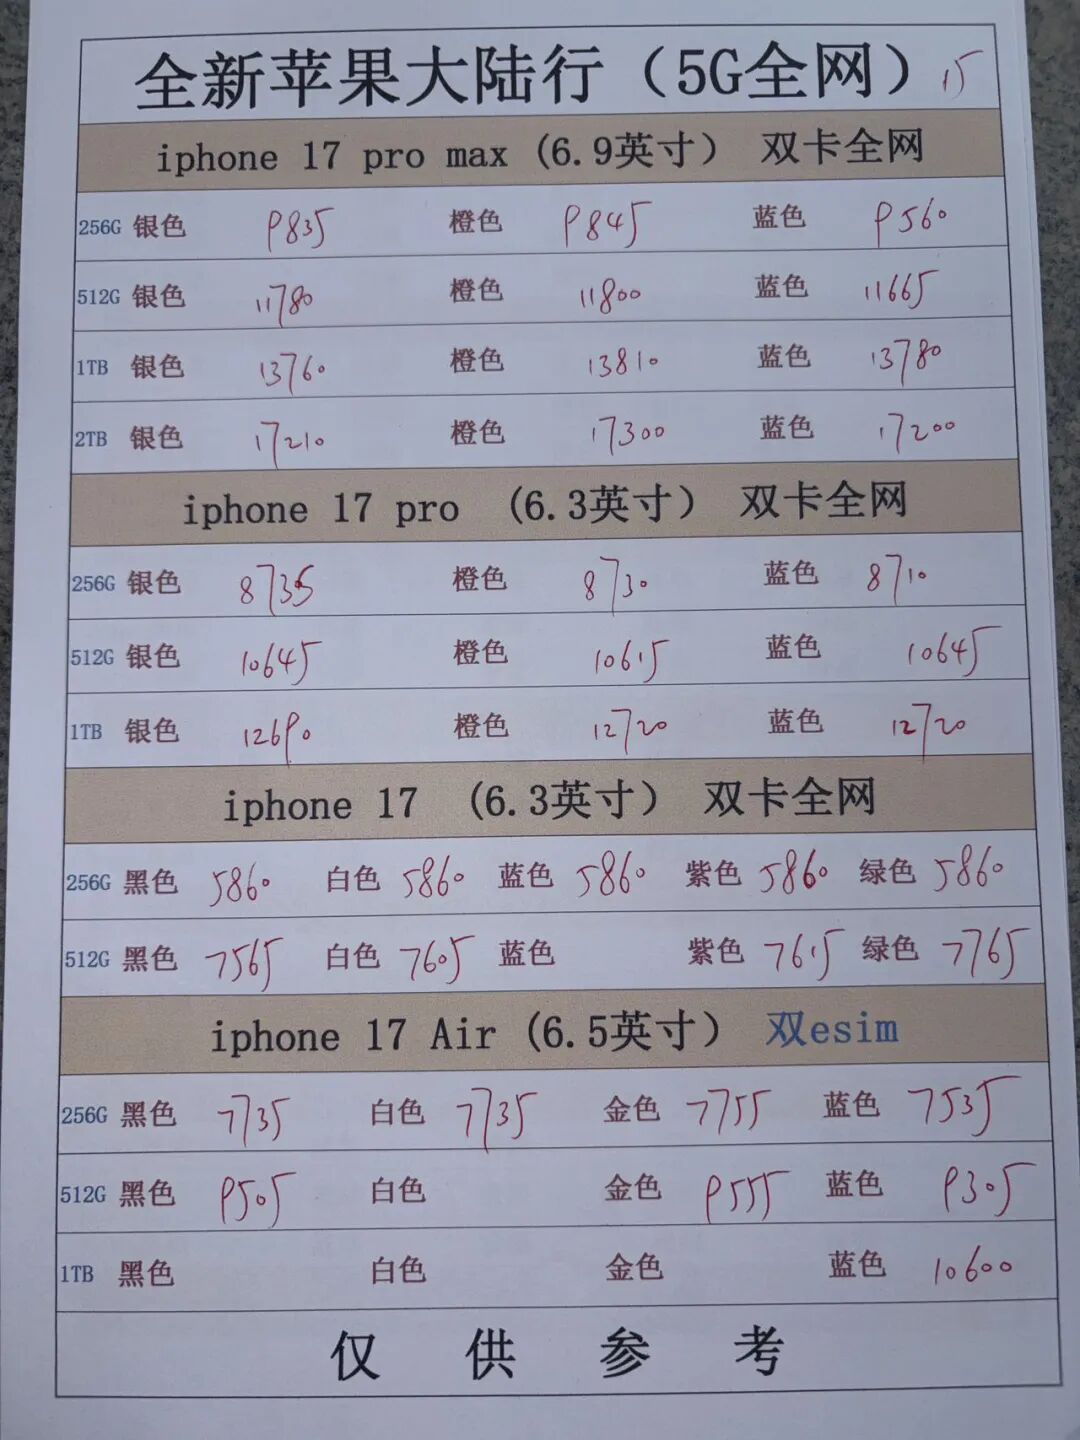 全新苹果大陆行（5G全网） 15
iphone 17 pro max (6.9英寸） 双卡全网
256G 银色 9835 橙色 9845 蓝色 9560
512G 银色 11780 橙色 11800 蓝色 11665
1TB 银色 13760 橙色 13810 蓝色 13780
2TB 银色 17210 橙色 17300 蓝色 17200
iphone 17 pro (6.3英寸） 双卡全网
256G 银色 8735 橙色 8730 蓝色 8710
512G 银色 10645 橙色 10615 蓝色 10645
1TB 银色 12690 橙色 12720 蓝色 12720
iphone 17 (6.3英寸） 双卡全网
256G 黑色 5860 白色 5860 蓝色 5860 紫色 5860 绿色 5860
512G 黑色 7565 白色 7605 蓝色 紫色 7615 绿色 7765
iphone 17 Air (6.5英寸） 双esim
256G 黑色 7735 白色 7735 金色 7755 蓝色 7535
512G 黑色 9505 白色 金色 9555 蓝色 9305
1TB 黑色 白色 金色 蓝色 10600
仅供参考